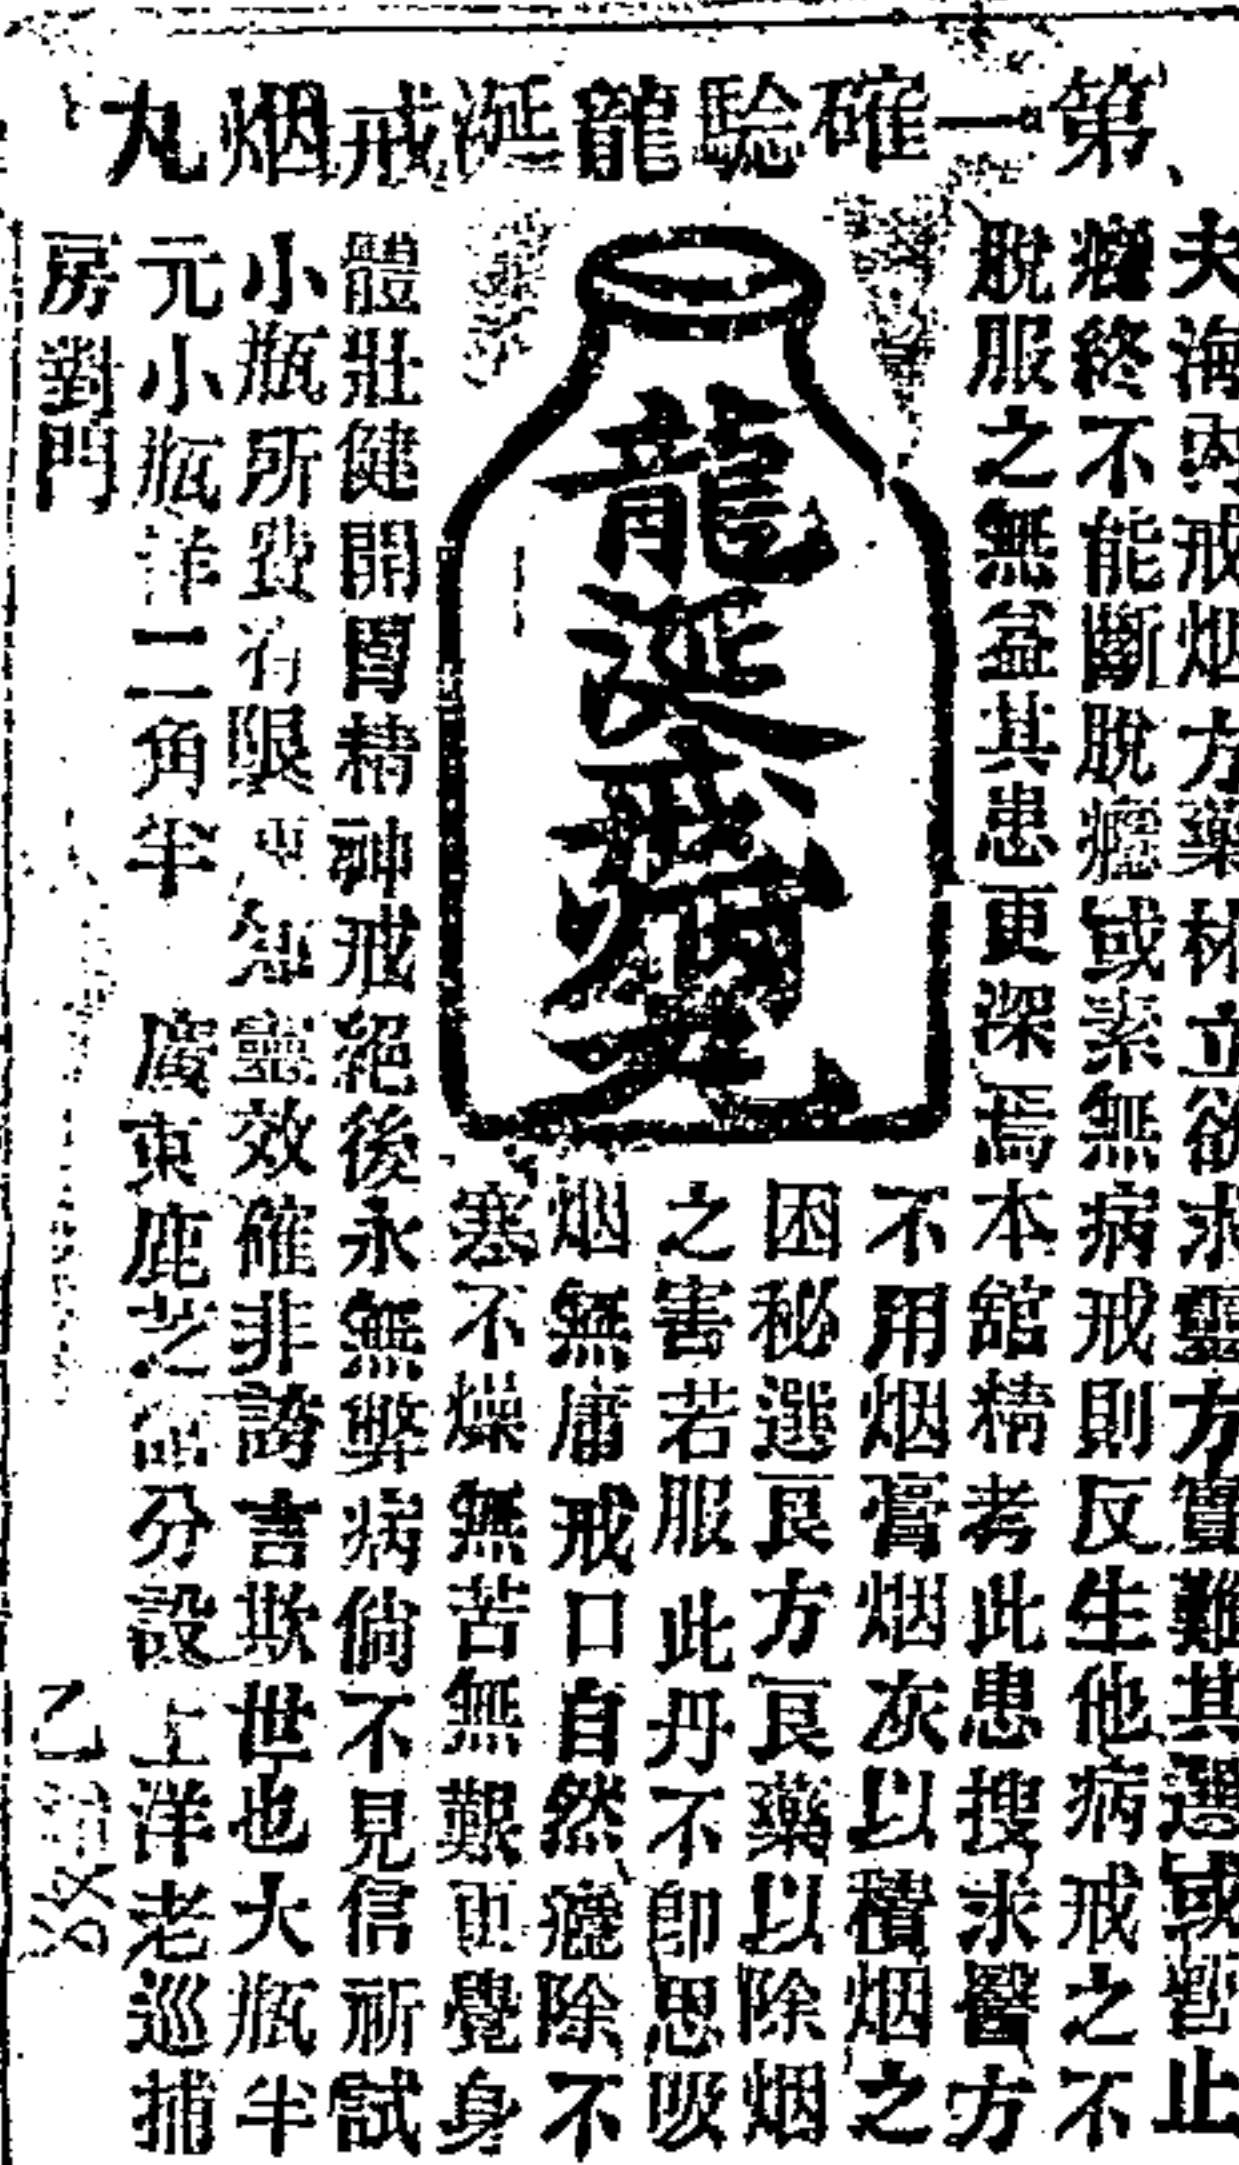 第一確騐龍涎戒烟丸
夫海內戒烟方藥林立欲求靈方實難其選或暫止
癮終不能斷脫癮或素無病戒則反生他病戒之不
脫服之無益其患更深焉本舘精考此患搜求醫方
不用烟膏烟灰以積烟之
困秘選良方良藥以除烟
之害若服此丹不卽思吸
烟無庸戒口自然癮除不
寒不燥無苦無艱更覺身
龍涎戒烟丸
體壯健開胃精神戒絕後永無弊病倘不見信祈試
小瓶所費有限更知靈效確非誇言欺世也大瓶半
元小瓶洋二角半 廣東鹿芝舘分設上洋老巡捕
房對門